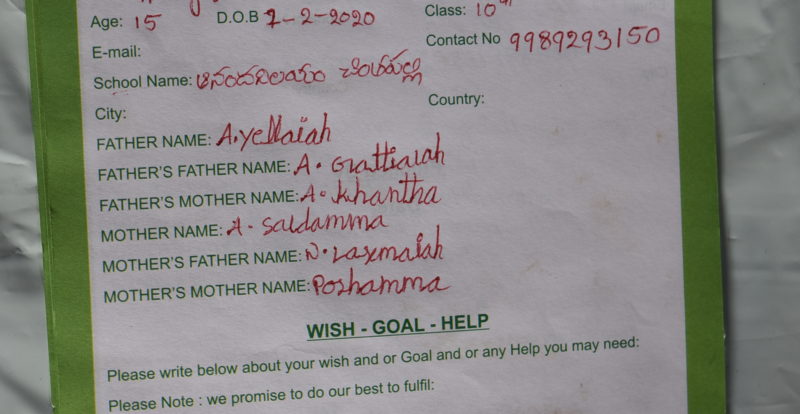 Age: 15 D.O.B 2-2-2020 Class: 10th
E-mail: Contact No 9989293150
School Name:
City: Country:
FATHER NAME: A.yellaiah
FATHER'S FATHER NAME: A. Grattiaiah
FATHER'S MOTHER NAME: A. khantha
MOTHER NAME: A. saldamma
MOTHER'S FATHER NAME: N. Laxmaiah
MOTHER'S MOTHER NAME: Poshamma
WISH - GOAL - HELP
Please write below about your wish and or Goal and or any Help you may need:
Please Note : we promise to do our best to fulfil: